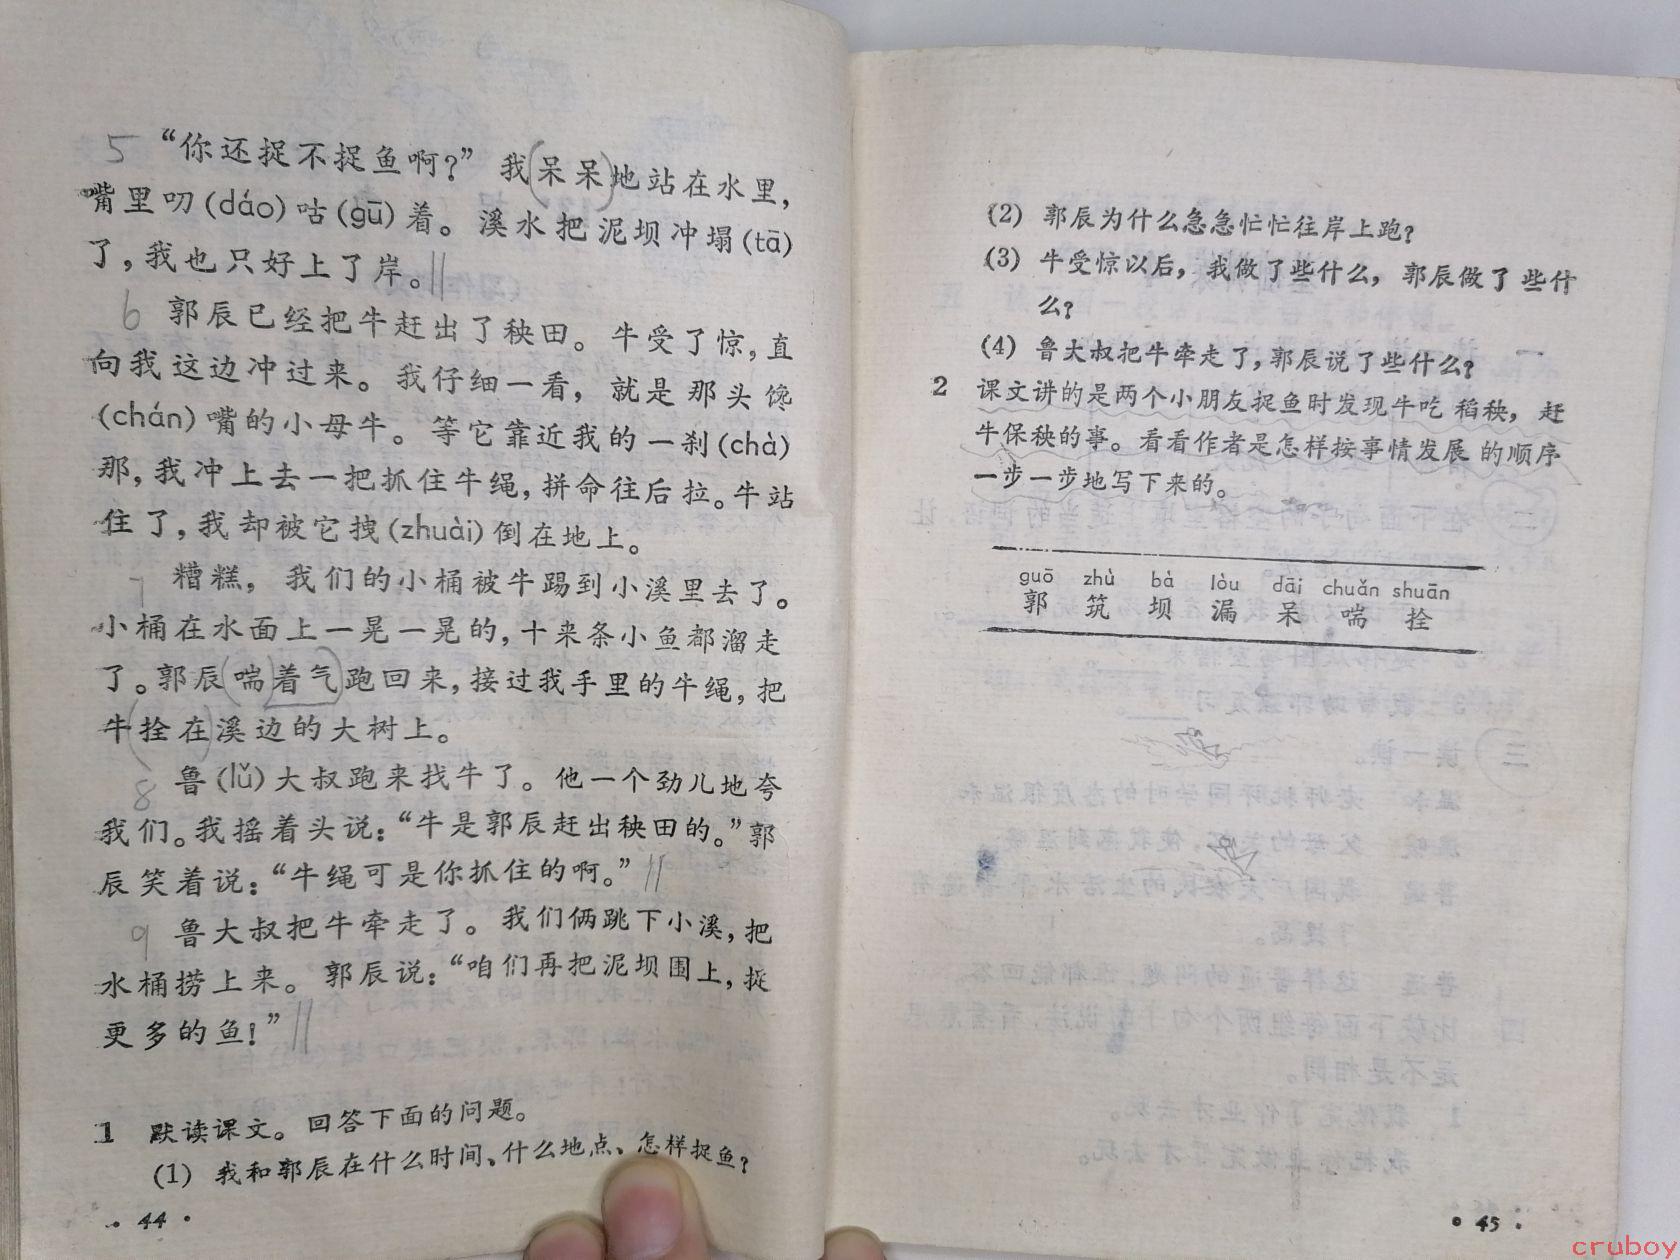 5 “你还捉不捉鱼啊?”我(呆呆)地站在水里,
嘴里叨(dáo)咕(gū)着。溪水把泥坝冲塌(tā)
了,我也只好上了岸。||
6 郭辰已经把牛赶出了秧田。牛受了惊,直
向我这边冲过来。我仔细一看,就是那头馋
(chán)嘴的小母牛。等它靠近我的一刹(chà)
那,我冲上去一把抓住牛绳,拼命往后拉。牛站
住了,我却被它拽(zhuài)倒在地上。
7 糟糕,我们的小桶被牛踢到小溪里去了。
小桶在水面上一晃一晃的,十来条小鱼都溜走
了。郭辰(喘着气)跑回来,接过我手里的牛绳,把
牛(拴在)溪边的大树上。
8 鲁(lǔ)大叔跑来找牛了。他一个劲儿地夸
我们。我摇着头说:“牛是郭辰赶出秧田的。”郭
辰笑着说:“牛绳可是你抓住的啊。”||
9 鲁大叔把牛牵走了。我们俩跳下小溪,把
水桶捞上来。郭辰说:“咱们再把泥坝围上,捉
更多的鱼!”||
1 默读课文。回答下面的问题。
(1) 我和郭辰在什么时间、什么地点、怎样捉鱼?
· 44 ·
(2) 郭辰为什么急急忙忙往岸上跑?
(3) 牛受惊以后,我做了些什么,郭辰做了些什
么?
(4) 鲁大叔把牛牵走了,郭辰说了些什么?
2 课文讲的是两个小朋友捉鱼时发现牛吃稻秧,赶
牛保秧的事。看看作者是怎样按事情发展的顺序
一步一步地写下来的。
guō zhù bà lòu dāi chuǎn shuān
郭 筑 坝 漏 呆 喘 拴
· 45 ·
cruboy